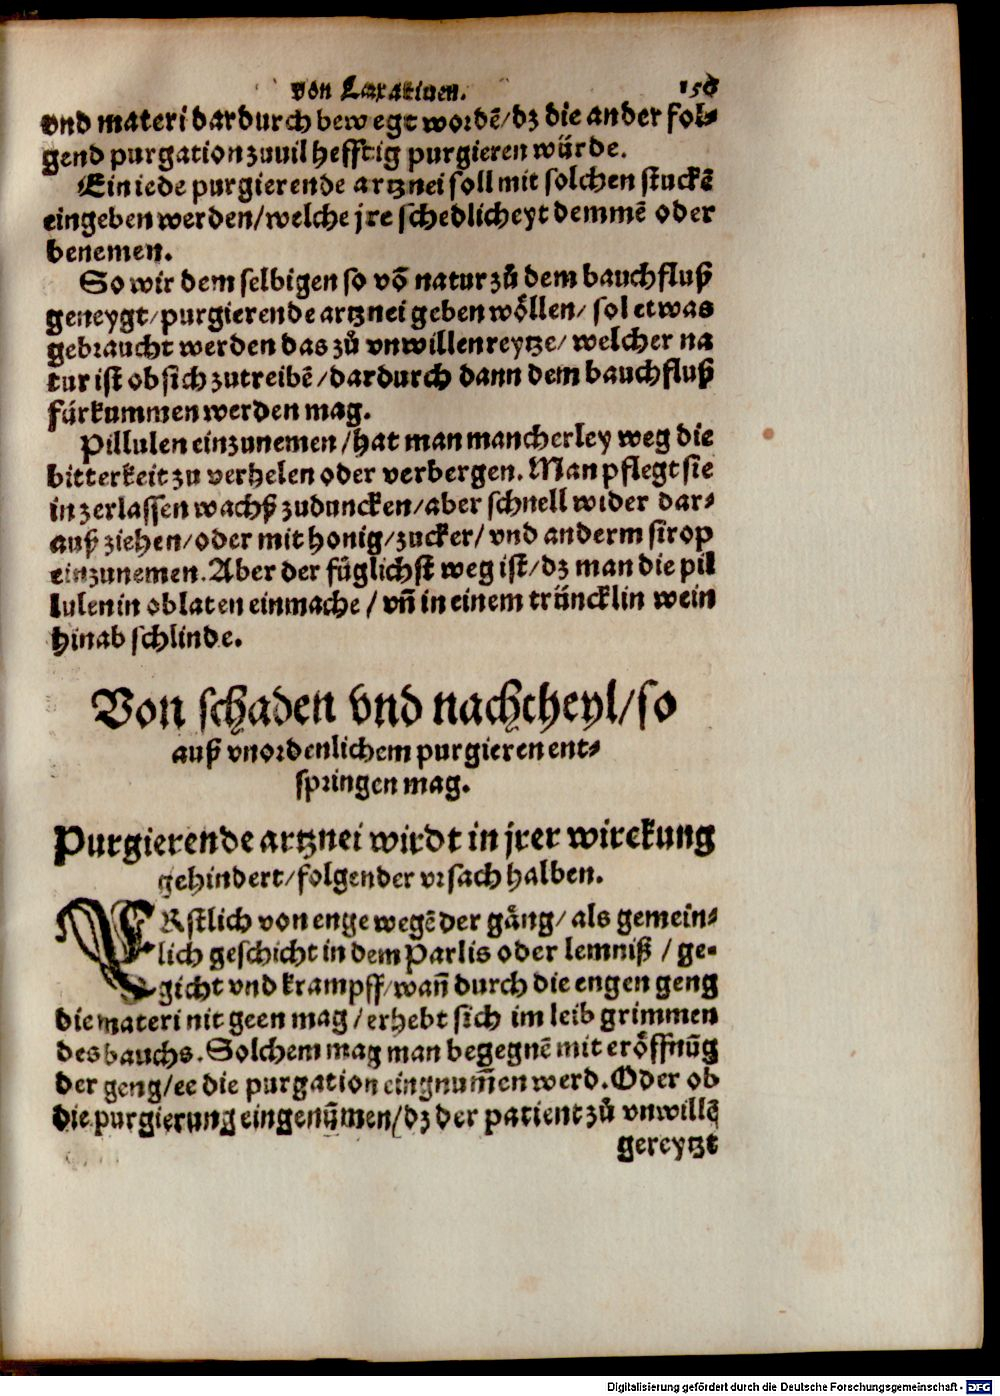 von Laxatiuen.
vnd materi dardurch bewegt wordẽ/dz die ander fol⸗
gend purgation zuuil hefftig purgieren würde.
Ein iede purgierende artznei soll mit solchen stuckẽ
eingeben werden/welche jre schedlicheyt demmẽ oder
benemen.
So wir dem selbigen so võ natur zů dem bauchfluß
geneygt/purgierende artznei geben wöllen/ sol etwas
gebraucht werden das zů vnwillen reytze/ welcher na
tur ist obsich zutreibẽ/dardurch dann dem bauchfluß
fürkummen werden mag.
Pillulen einzunemen/hat man mancherley weg die
bitterkeit zu verhelen oder verbergen. Man pflegt sie
in zerlassen wachß zuduncken/aber schnell wider dar⸗
auß ziehen/oder mit honig/zucker/ vnd anderm sirop
einzunemen. Aber der füglichst weg ist/dz man die pil
lulen in oblaten einmache / vñ in einem trüncklin wein
hinab schlinde.
Von schaden vnd nachtheyl/so
auß vnordenlichem purgieren ent⸗
springen mag.
Purgierende artznei wirdt in jrer wirckung
gehindert/folgender vrsach halben.
ERstlich von enge wegẽ der gäng/ als gemein⸗
lich geschicht in dem Parlis oder lemniß / ge⸗
gicht vnd krampff/wañ durch die engen geng
die materi nit geen mag/erhebt sich im leib grimmen
des bauchs. Solchem mag man begegnẽ mit eröffnũg
der geng/ee die purgation eingnum̃en werd. Oder ob
die purgierung eingenum̃men/dz der patient zů vnwillẽ
gereytzt
Digitalisierung gefördert durch die Deutsche Forschungsgemeinschaft - DFG